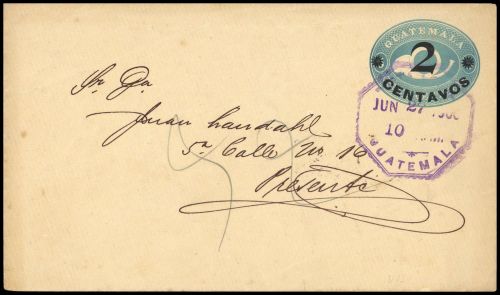 GUATEMALA
2
CENTAVOS
JUN 27
10
GUATEMALA
Sr. Dn.
Juan Landahl
5a Calle No 16
Presente